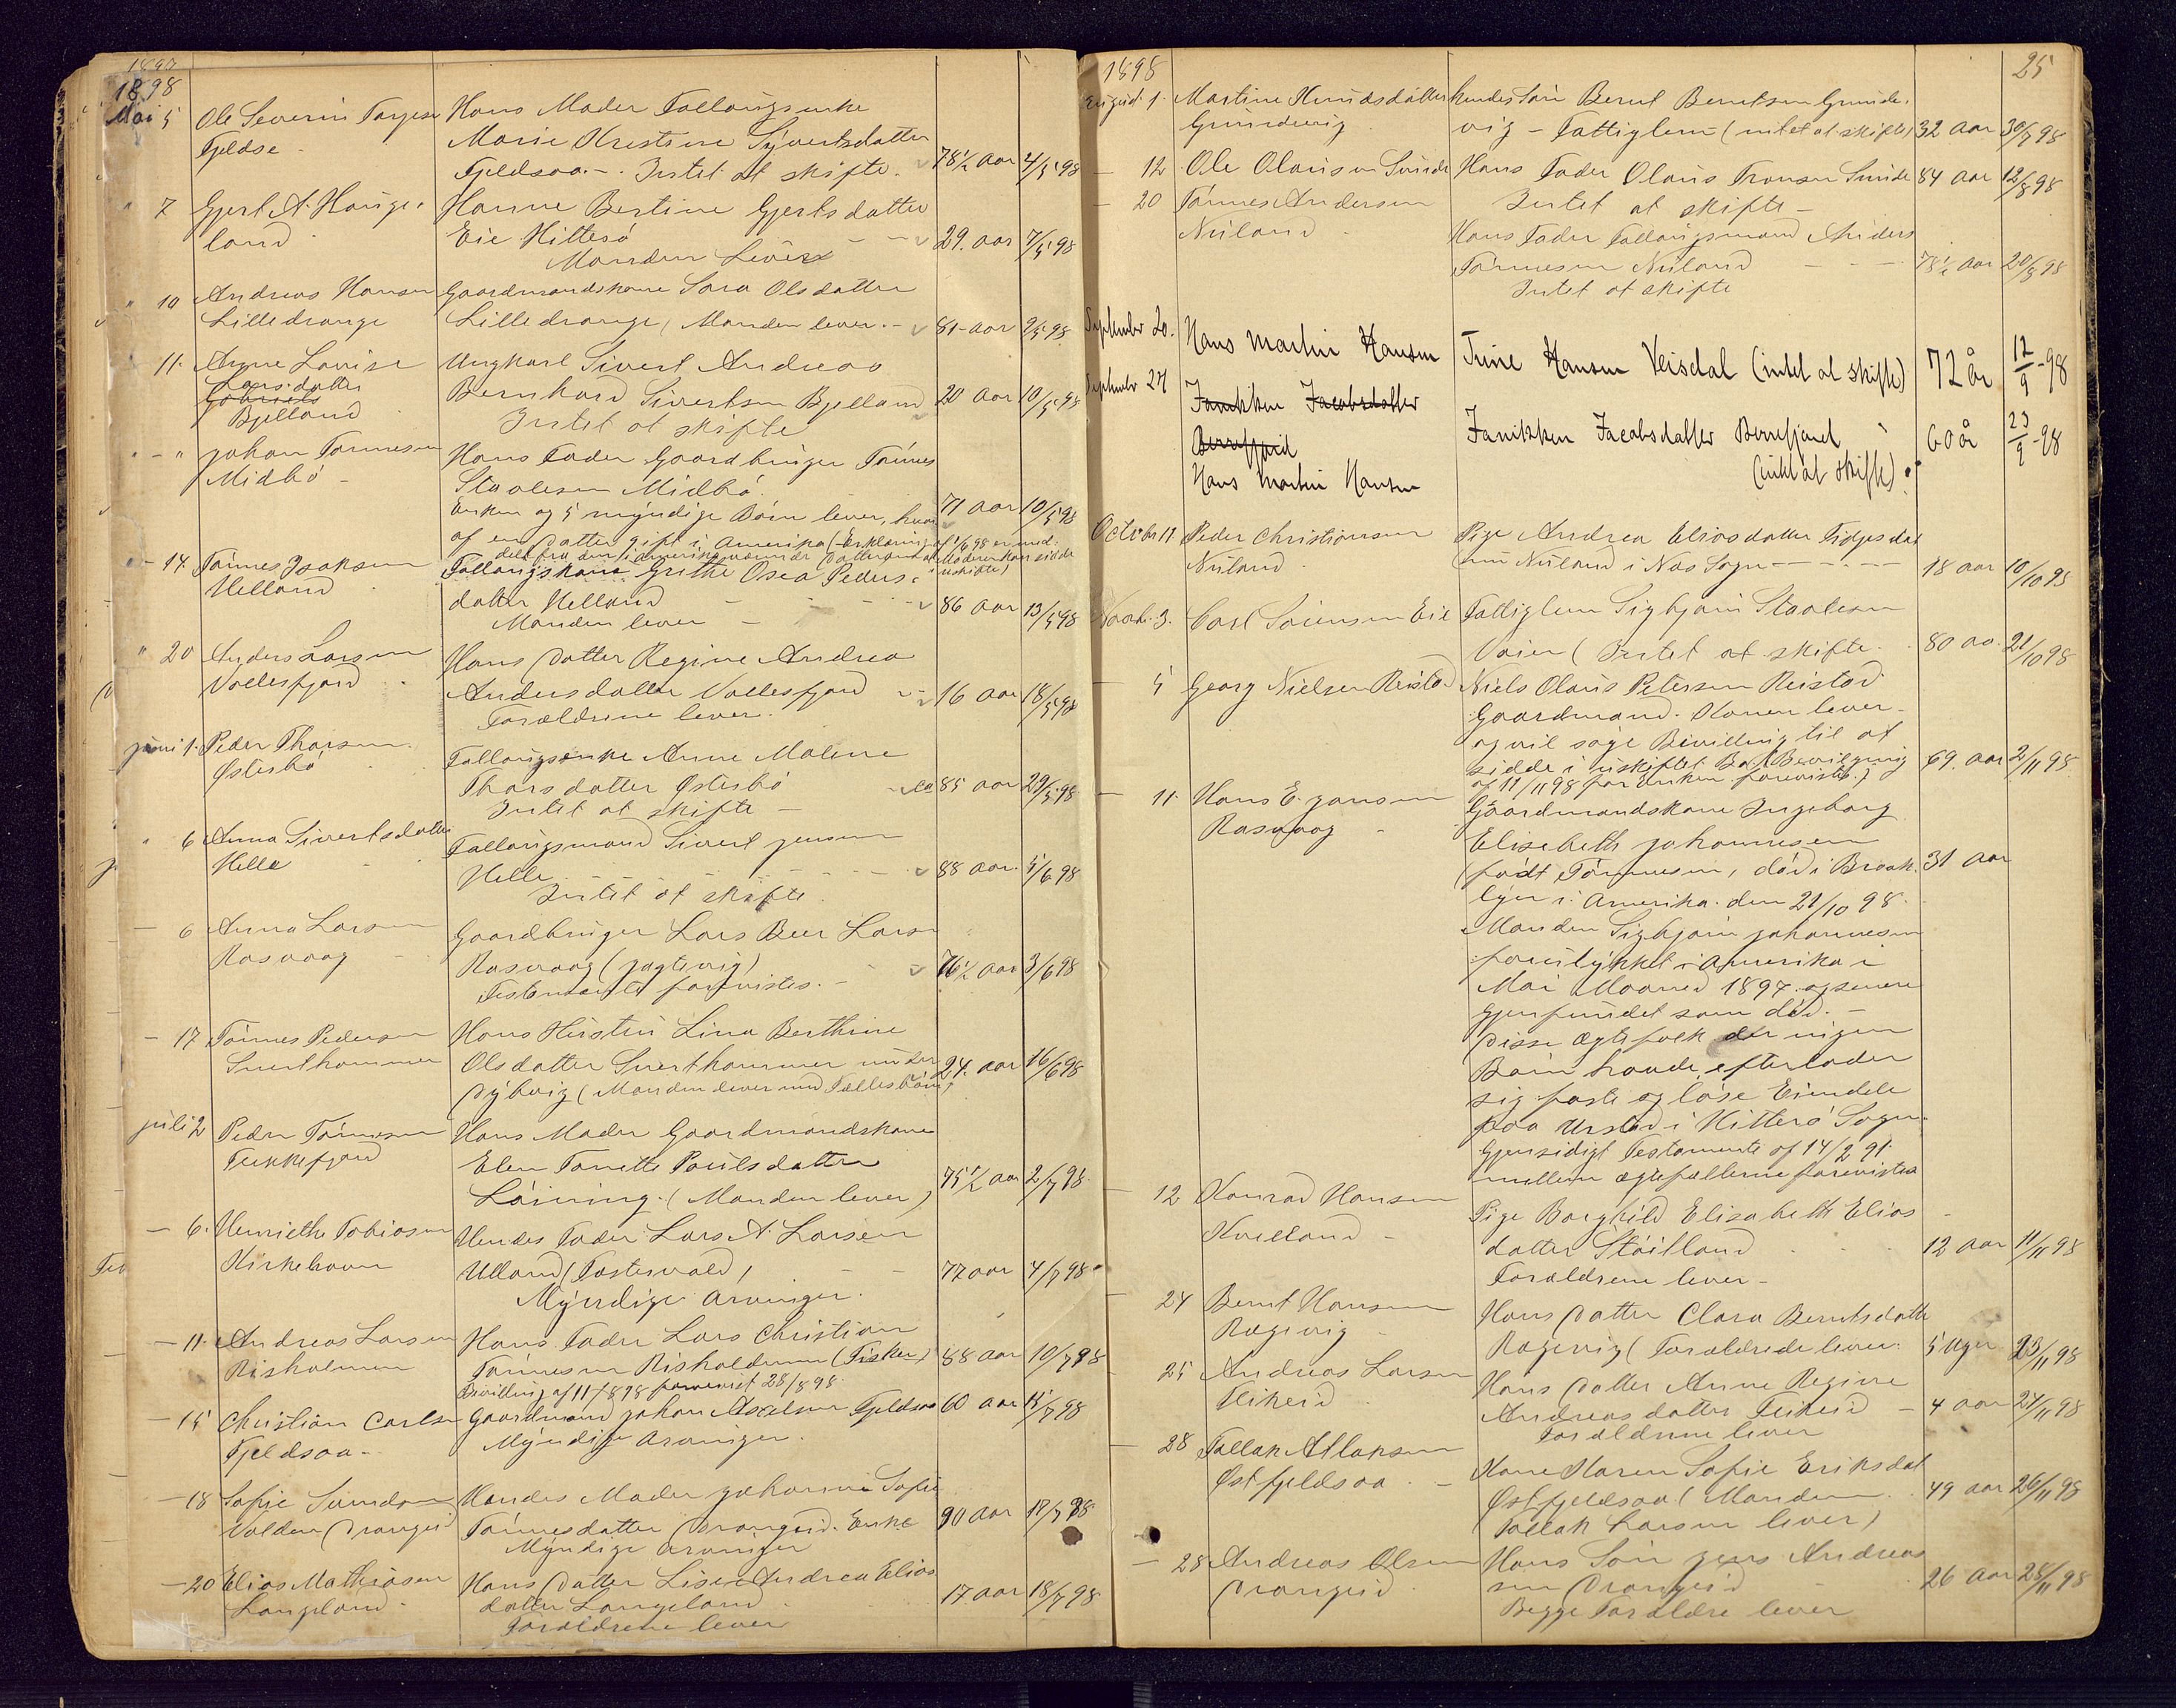 1897
1898
Mai 5 Ole Severin Torjesen Hans Moder Fattigsenke
Fjeldse - Marie Kristine Syvertsdatter
Fjeldsaa. - Intet at skifte. 78½ aar 4/5 98
" 7 Gjert A. Hauge- Hanne Bertine Gjertsdatter
land Eie Hitterö - - 29. aar 7/5 98
Manden Lever
" 10 Andreas Hansen Gaardmandskone Sara Olsdatter
Lilledrange Lilledrange, Manden lever. - 81 aar 9/5 98
11. Anne Lovise Ungkarl Sivert Andreas
Larsdatter
Bjelland Bernhard Sivertsen Bjelland 20 aar 10/5 98
Intet at skifte
" - " Johan Tønnesen Hans Fader Gaardbruger Tønnes
Midbö - Staalesen Midbö.
Enken og 5 myndige Børn lever, hvor- 71 aar 10/5 98
af en Datter gift i Amerika (Erklæring af 1/6 98
" - 14. Tønnes Isaksen Grethe Osea Peders-
Helland datter Helland - - 86 aar 13/5 98
Manden lever -
" 20 Anders Larsen Hans Datter Regine Andrea
Vollesfjord Andersdatter Vollesfjord 16 aar 18/5 98
Forældrene lever.
Juni 1. Peder Thorsen Anne Malene
Østebö Thorsdatter Østebö ca 85 aar 29/5 98
Intet at skifte
" 6 Anna Sivertsdatter Sivert Jensen
Helle Helle - - - - 88 aar. 5/6 98
Intet at skifte
- 6 Anna Larsen Gaardbruger Lars Beer Larsen
Rasvaag - Rasvaag (Jagtevig) - 76½ aar 3/6 98
Testamente forevistes. -
- 17 Tønnes Pedersen Hans Hustru Lina Berthine
Sverthammer Olsdatter Sverthammer 24. aar 16/6 98
Dybvig (Manden lever med Fællesbörn)
Juli 2 Peder Tønnesen Hans Moder Gaardmandskone
Flekkefjord Elen Tonette Poulsdatter
Löining. (Manden lever) 75½ aar 2/7 98
- 6. Henriette Tobiasen Hendes Fader Lars A. Larsen
Kirkehavn Ulland - - 77 aar 4/7 98
Myndige arvinger.
- 11. Andreas Larsen Hans Fader Lars Christian
Risholmen Tønnesen Risholmen (Fisker) 88 aar 10/7 98
Bevilling af 11/7 98 forevist 28/8 98
- 15 Christian Carlsen Gaardmand Johan Axelsen Fjeldsaa 60 aar 15/7 98
Fjeldsaa - Myndige arvinger.
- 18 Sofie Hendes Moder Johanne Sofie
Volden Drangeid Tønnesdatter Drangeid. Enke 90 aar 17/7 98
Myndige arvinger
- 20 Elias Mathiasen Hans Datter Lise Andrea Elias
Langeland datter Langeland 17 aar 18/7 98
Forældrene lever
1898 25
August 1. Martine Knudsdatter hendes Søn Bernt Berntsen Grunde-
Grundevig vig - Fattiglem - (intet at skifte) 32 aar 30/7 98
- 12 Ole Olausen Sunde Hans Fader Olaus Tronsen Sunde 84 aar 12/8 98
Intet at skifte -
- 20 Tønnes Andersen Hans Fader Anders
Nuland Tønnesen Nuland - - - 78½ aar 20/8 98
Intet at skifte
September 20. Hans Martin Hansen Trine Hansen Veisdal (intet at skifte) 72 år 12/9 - 98
September 24 Janikken Jacobsdatter
Berrefjord Janikken Jacobsdatter Berrefjord 60 år 23/9 - 98
Hans Martin Hansen (intet at skifte)
October 11 Peder Christiansen Pige Andrea Eliasdatter Fidjesdal
Nuland nu Nuland i Nes Sogn - - - - 18 aar 10/10 98
Novbr. 3. Carl Sørensen Eie Fattiglem Sigbjørn Staalesen
(Intet at skifte. 80 aa. 21/10 98
- 5 Georg Nielsen Reistad Niels Olaus Petersen Reistad
Gaardmand. Konen lever -
og vil søge Bevilling til at
sidde i uskiftet Bo (Bevilgning 69. aar 2/11 98
af 11/11 98 for Enken forevistes.)
- 11. Hans E. Jansen Gaardmandskone Ingeborg
Rasvaag - Elisabeth Johannesen
(født Tønnesen, død i Brook- 31 aar
lyn i Amerika den 21/10 98.
Manden Sigbjørn Johannesen
forulykket i Amerika i
Mai Maaned 1897 og senere
gjenfundet som död. -
Disse ægtefolk der ingen
Børn havde, efterlader
sig faste og løse Eiendele
paa Ursted i Hitterö Sogn.
Gjensidigt Testamente af 14/2 91
mellem ægtefællerne forevistes
- 12 Konrad Hansen Pige Borghild Elisabeth Elias
Kvelland - datter Støitland - - 12 aar 11/11 98
Forældrene lever -
- 24 Bernt Hansen Hans Datter Clara Berntsdatter
Rægevig - Rægevig (Forældrede lever. 5 Uger 23/11 98
25 Andreas Larsen Hans Datter Anne Regine
Fikeid Andreasdatter Fikeid - 4 aar 24/11 98
Forældrene lever
- 28 Tallak Atlaksen Kone Karen Sofie Eriksdat
Østfjeldsaa. - Østfjeldsaa (Manden 49 aar 26/11 98
Tallak Larsen lever)
- 28 Andreas Olsen Hans Søn Jens Andreas
Drangeid sen Drangeid - 26 aar 28/11 98
Begge Forældre lever